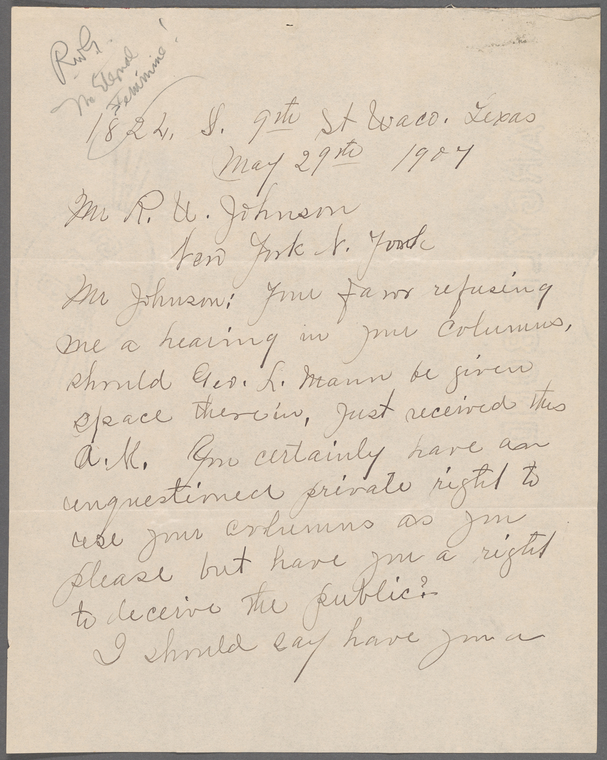 R.W.G.
The Eternal
Feminine!
1824. S. 9th St Waco. Texas
May 29th 1907
Mr R. U. Johnson
New York N. York
Mr Johnson; Your favor refusing
me a hearing in your columns,
should Geo. L. Mann be given
space therein, just received this
A.M. You certainly have an
unquestioned private right to
use your columns as you
please but have you a right
to deceive the public?
I should say have you a